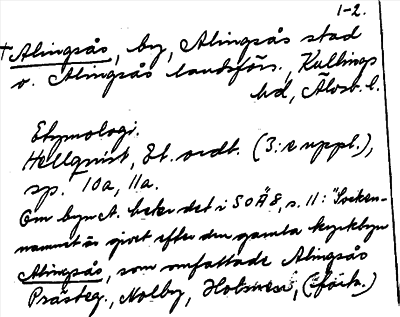 1-2.
†Alingsås, by, Alingsås stad
o. Alingsås landsförs., Kullings
hd, Älvsb. l.
Etymologi.
Hellquist, Et. ordb. (3:e uppl.),
sp. 10a, 11a.
Om byn A. heter det i SOÄ 8, s. 11: "Socken-
namnet är givet efter den gamla kyrkbyn
Alingsås, som omfattade Alingsås
Prästeg., Nolby, (forts.)